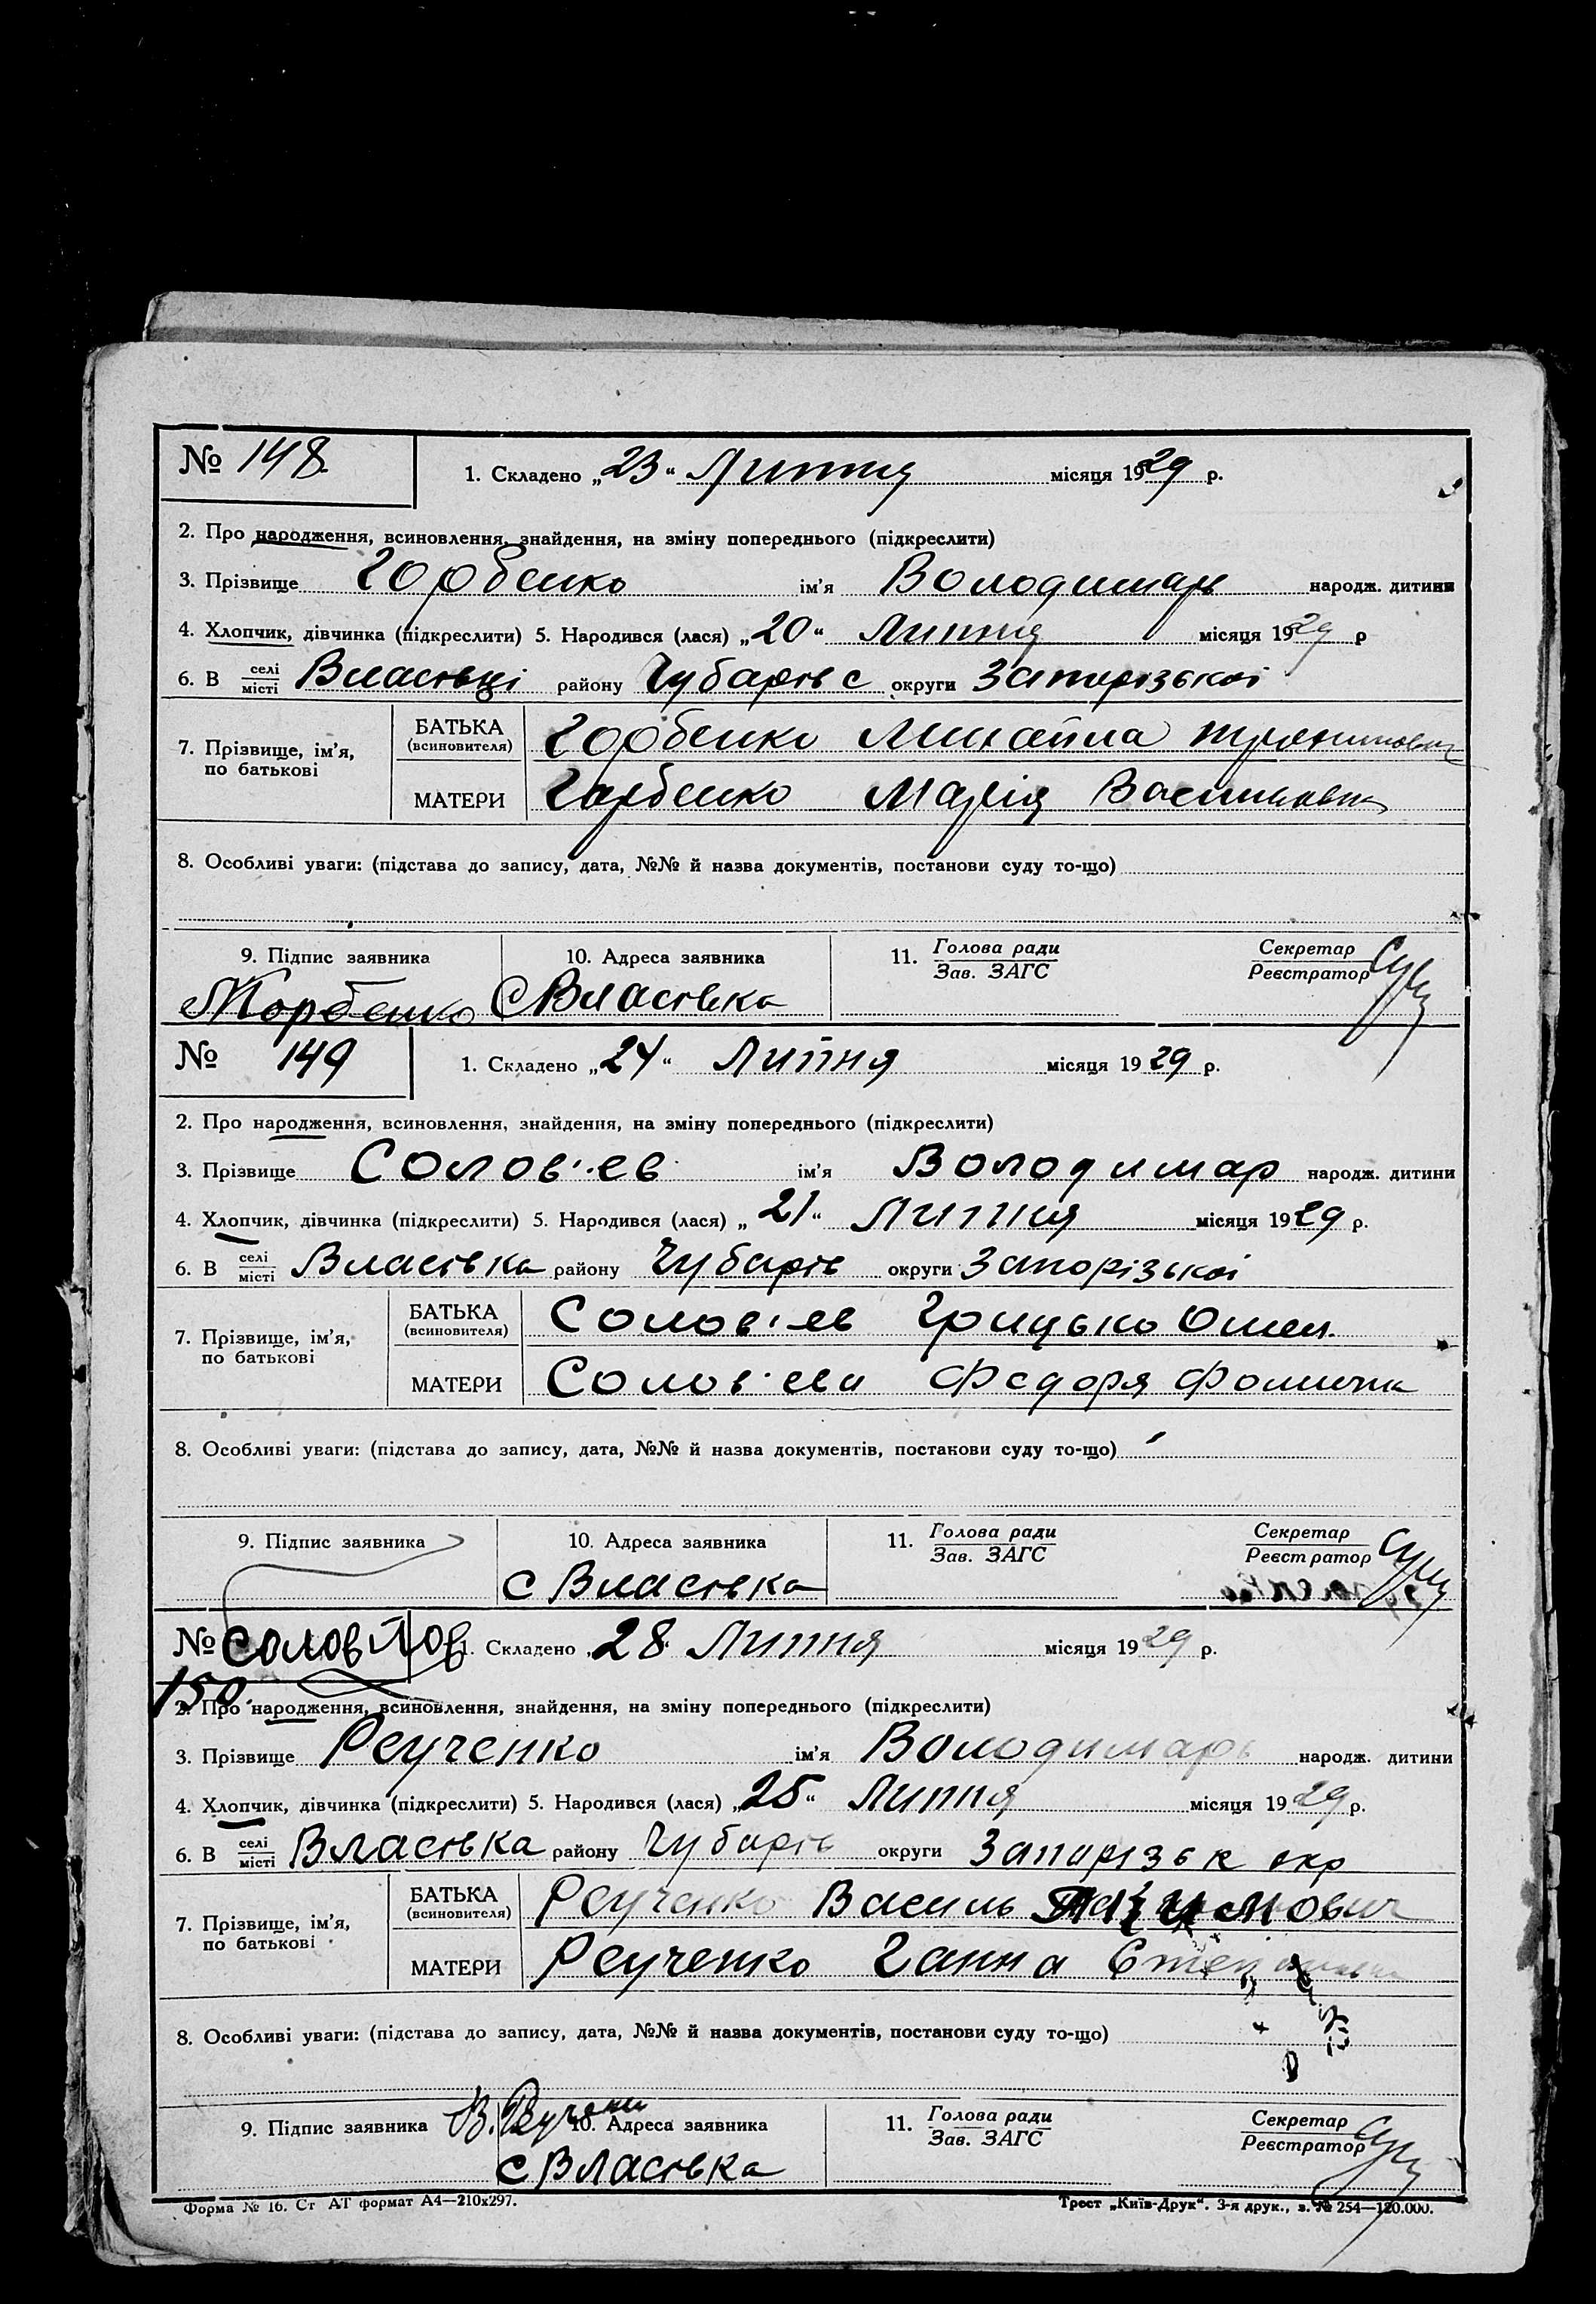 № 148. 1. Складено „23“ Липня місяця 1929 р.
2. Про народження, всиновлення, знайдення, на зміну попереднього (підкреслити)
3. Прізвище Горбенко ім’я Володимарь народж. дитини
4. Хлопчик, дівчинка (підкреслити) 5. Народився (лася) „20“ Липня місяця 1929 р
6. В селі місті Власівці району Чубарівс округи Запорізької
7. Прізвище, ім’я, по батькові
БАТЬКА (всиновителя) Горбенко Михайла
МАТЕРИ Горбенко Марія Васильовна
8. Особливі уваги: (підстава до запису, дата, №№ й назва документів, постанови суду то-що)
9. Підпис заявника 10. Адреса заявника 11. Голова ради Зав. ЗАГС Секретар Реєстратор
МГорбенко С Власівка
№ 149 1. Складено „24“ Липня місяця 1929 р.
2. Про народження, всиновлення, знайдення, на зміну попереднього (підкреслити)
3. Прізвище Солов'ев ім’я Володимар народж. дитини
4. Хлопчик, дівчинка (підкреслити) 5. Народився (лася) „21“ Липня місяця 1929 р.
6. В селі місті Власівка району Чубарів округи Запорізької
7. Прізвище, ім’я, по батькові
БАТЬКА (всиновителя) Солов'ев Грицько Омел.
МАТЕРИ Солов'ева Федоря Фомична
8. Особливі уваги: (підстава до запису, дата, №№ й назва документів, постанови суду то-що)
9. Підпис заявника 10. Адреса заявника 11. Голова ради Зав. ЗАГС Секретар Реєстратор
с Власівка
№ Соловйов 1. Складено „28“ Липня місяця 1929 р.
150.
2. Про народження, всиновлення, знайдення, на зміну попереднього (підкреслити)
3. Прізвище Реученко ім’я Володимарь народж. дитини
4. Хлопчик, дівчинка (підкреслити) 5. Народився (лася) „25“ Липня місяця 1929 р.
6. В селі місті Власівка району Чубарів округи Запорізьк окр
7. Прізвище, ім’я, по батькові
БАТЬКА (всиновителя) Реученко Василь
МАТЕРИ Реученко Ганна
8. Особливі уваги: (підстава до запису, дата, №№ й назва документів, постанови суду то-що)
9. Підпис заявника 10. Адреса заявника 11. Голова ради Зав. ЗАГС Секретар Реєстратор
с Власівка
Форма № 16. Ст АТ формат А4—210х297. Трест „Київ-Друк“. 3-я друк., з. № 254—120.000.